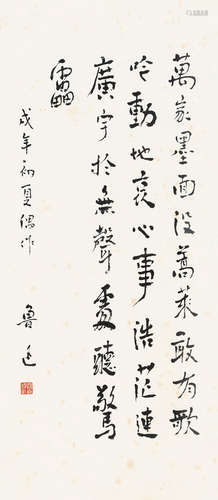 萬家墨面没蒿萊敢有歌
吟動地哀心事浩茫連
廣宇於無聲處聽驚
靁
戌年初夏偶作
魯迅